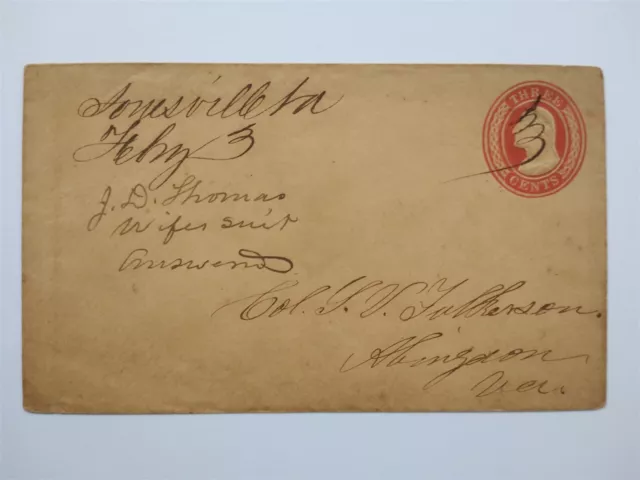 Jonesville Va
Feby 3
THREE
3
CENTS
J. D. Thomas
Wifes suit
Answered
Col. S. V. Fulkerson.
Abingdon
Va.